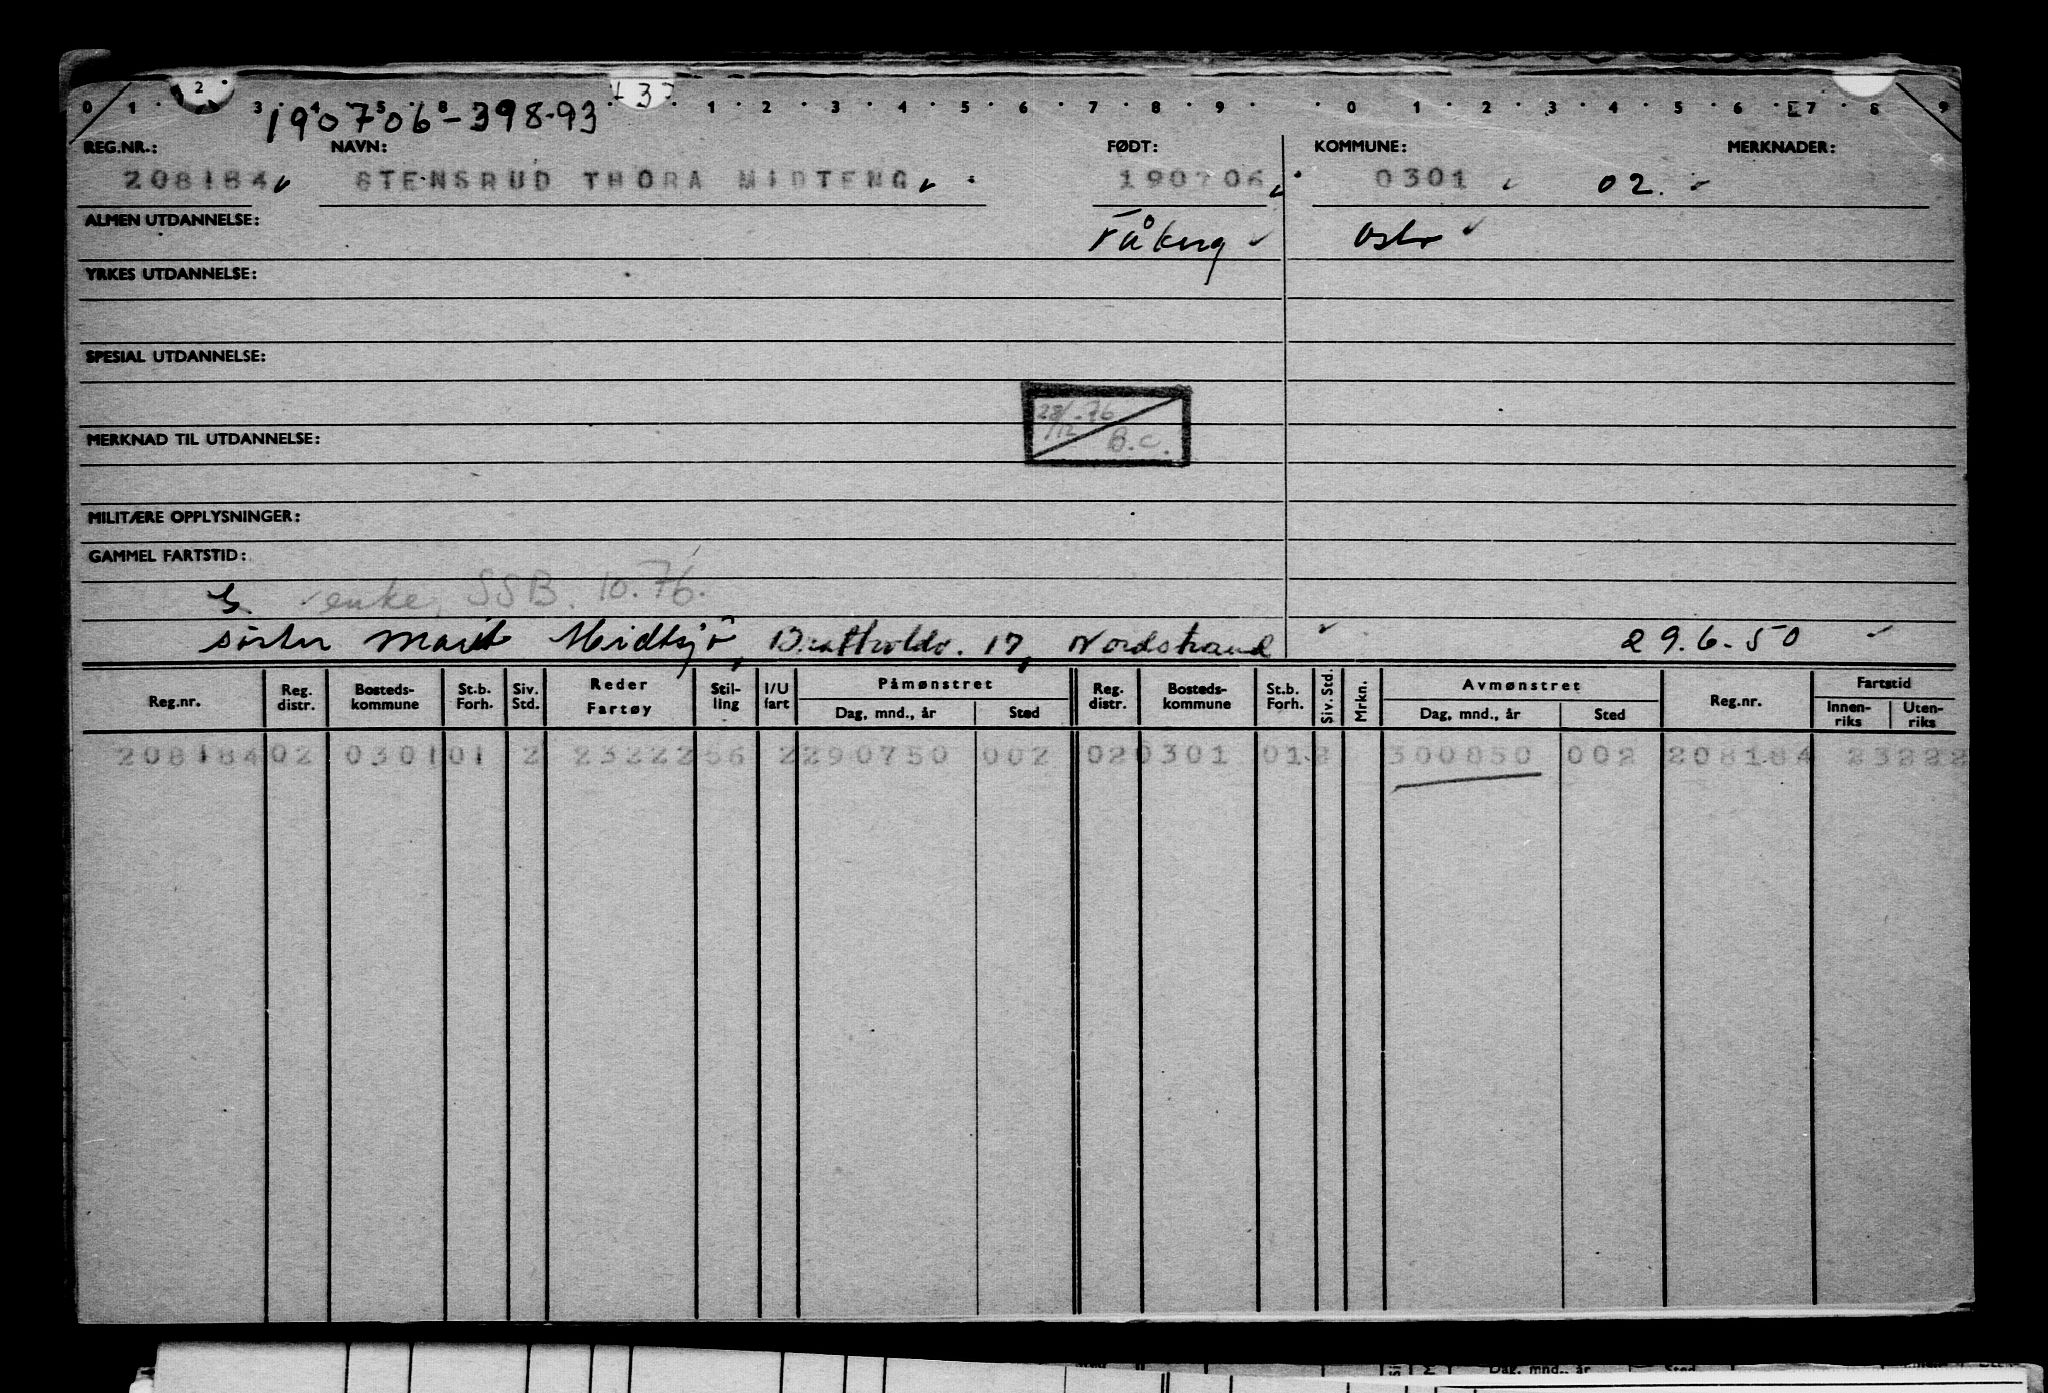 0 1 2 3 4 5 6 3 1 2 3 4 5 6 7 8 9 0 1 2 3 4 5 6 7 8 9
190706-398-93
REG.NR.: NAVN: FØDT: KOMMUNE: MERKNADER:
208184 STENSRUD THORA MIDTENG 190706 0301 02.
ALMEN UTDANNELSE: Fåberg Oslo
YRKES UTDANNELSE:
SPESIAL UTDANNELSE:
28/12-76
B.C.
MERKNAD TIL UTDANNELSE:
MILITÆRE OPPLYSNINGER:
GAMMEL FARTSTID:
enke, SSB. 10.76.
søster Marit Midtsjø, 17, Nordstrand 29.6.50
Reg.nr. Reg. distr. Bosteds-kommune St.b. Forh. Siv. Std. Reder Fartøy Stil-ling I/U fart Påmønstret Dag, mnd., år Sted Reg. distr. Bosteds-kommune St.b. Forh. Siv. Std. Mrkn. Avmønstret Dag, mnd., år Sted Reg.nr. Fartstid Innen-riks Uten-riks
208184 02 0301 01 2 23222 56 2 290750 002 02 0301 01 2 300850 002 208184 23222
Dag, mnd., år Sted